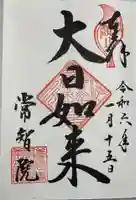 奉拝
令和六年
月十五日
大日如来
常智院